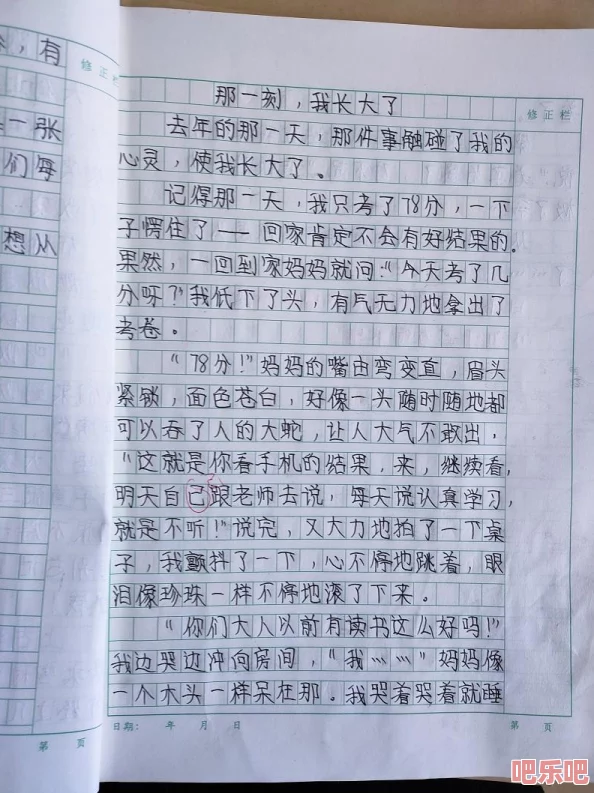 ，有
修正栏
一张
们每
想从
第 页
那一刻，我长大了
修正栏
去年的那一天，那件事触碰了我的
心灵，使我长大了。
记得那一天，我只考了78分，一下
子愣住了——回家肯定不会有好结果的。
果然，一回到家妈妈就问："今天考了几
分呀？"我低下了头，有气无力地拿出了
考卷。
"78分！"妈妈的嘴由弯变直，眉头
紧锁，面色苍白，好像一头随时随地都
可以吞了人的大蛇，让人大气不敢出，
"这就是你看手机的结果，来，继续看，
明天自己跟老师去说，每天说认真学习，
就是不听！"说完，又大力地拍了一下桌
子，我颤抖了一下，心不停地跳着，眼
泪像珍珠一样不停地滚了下来。
"你们大人以前有读书这么好吗！"
我边哭边冲向房间，"我……"妈妈像
一个木头一样呆在那。我哭着哭着就睡
日期： 年 月 日
第 页
吧乐吧